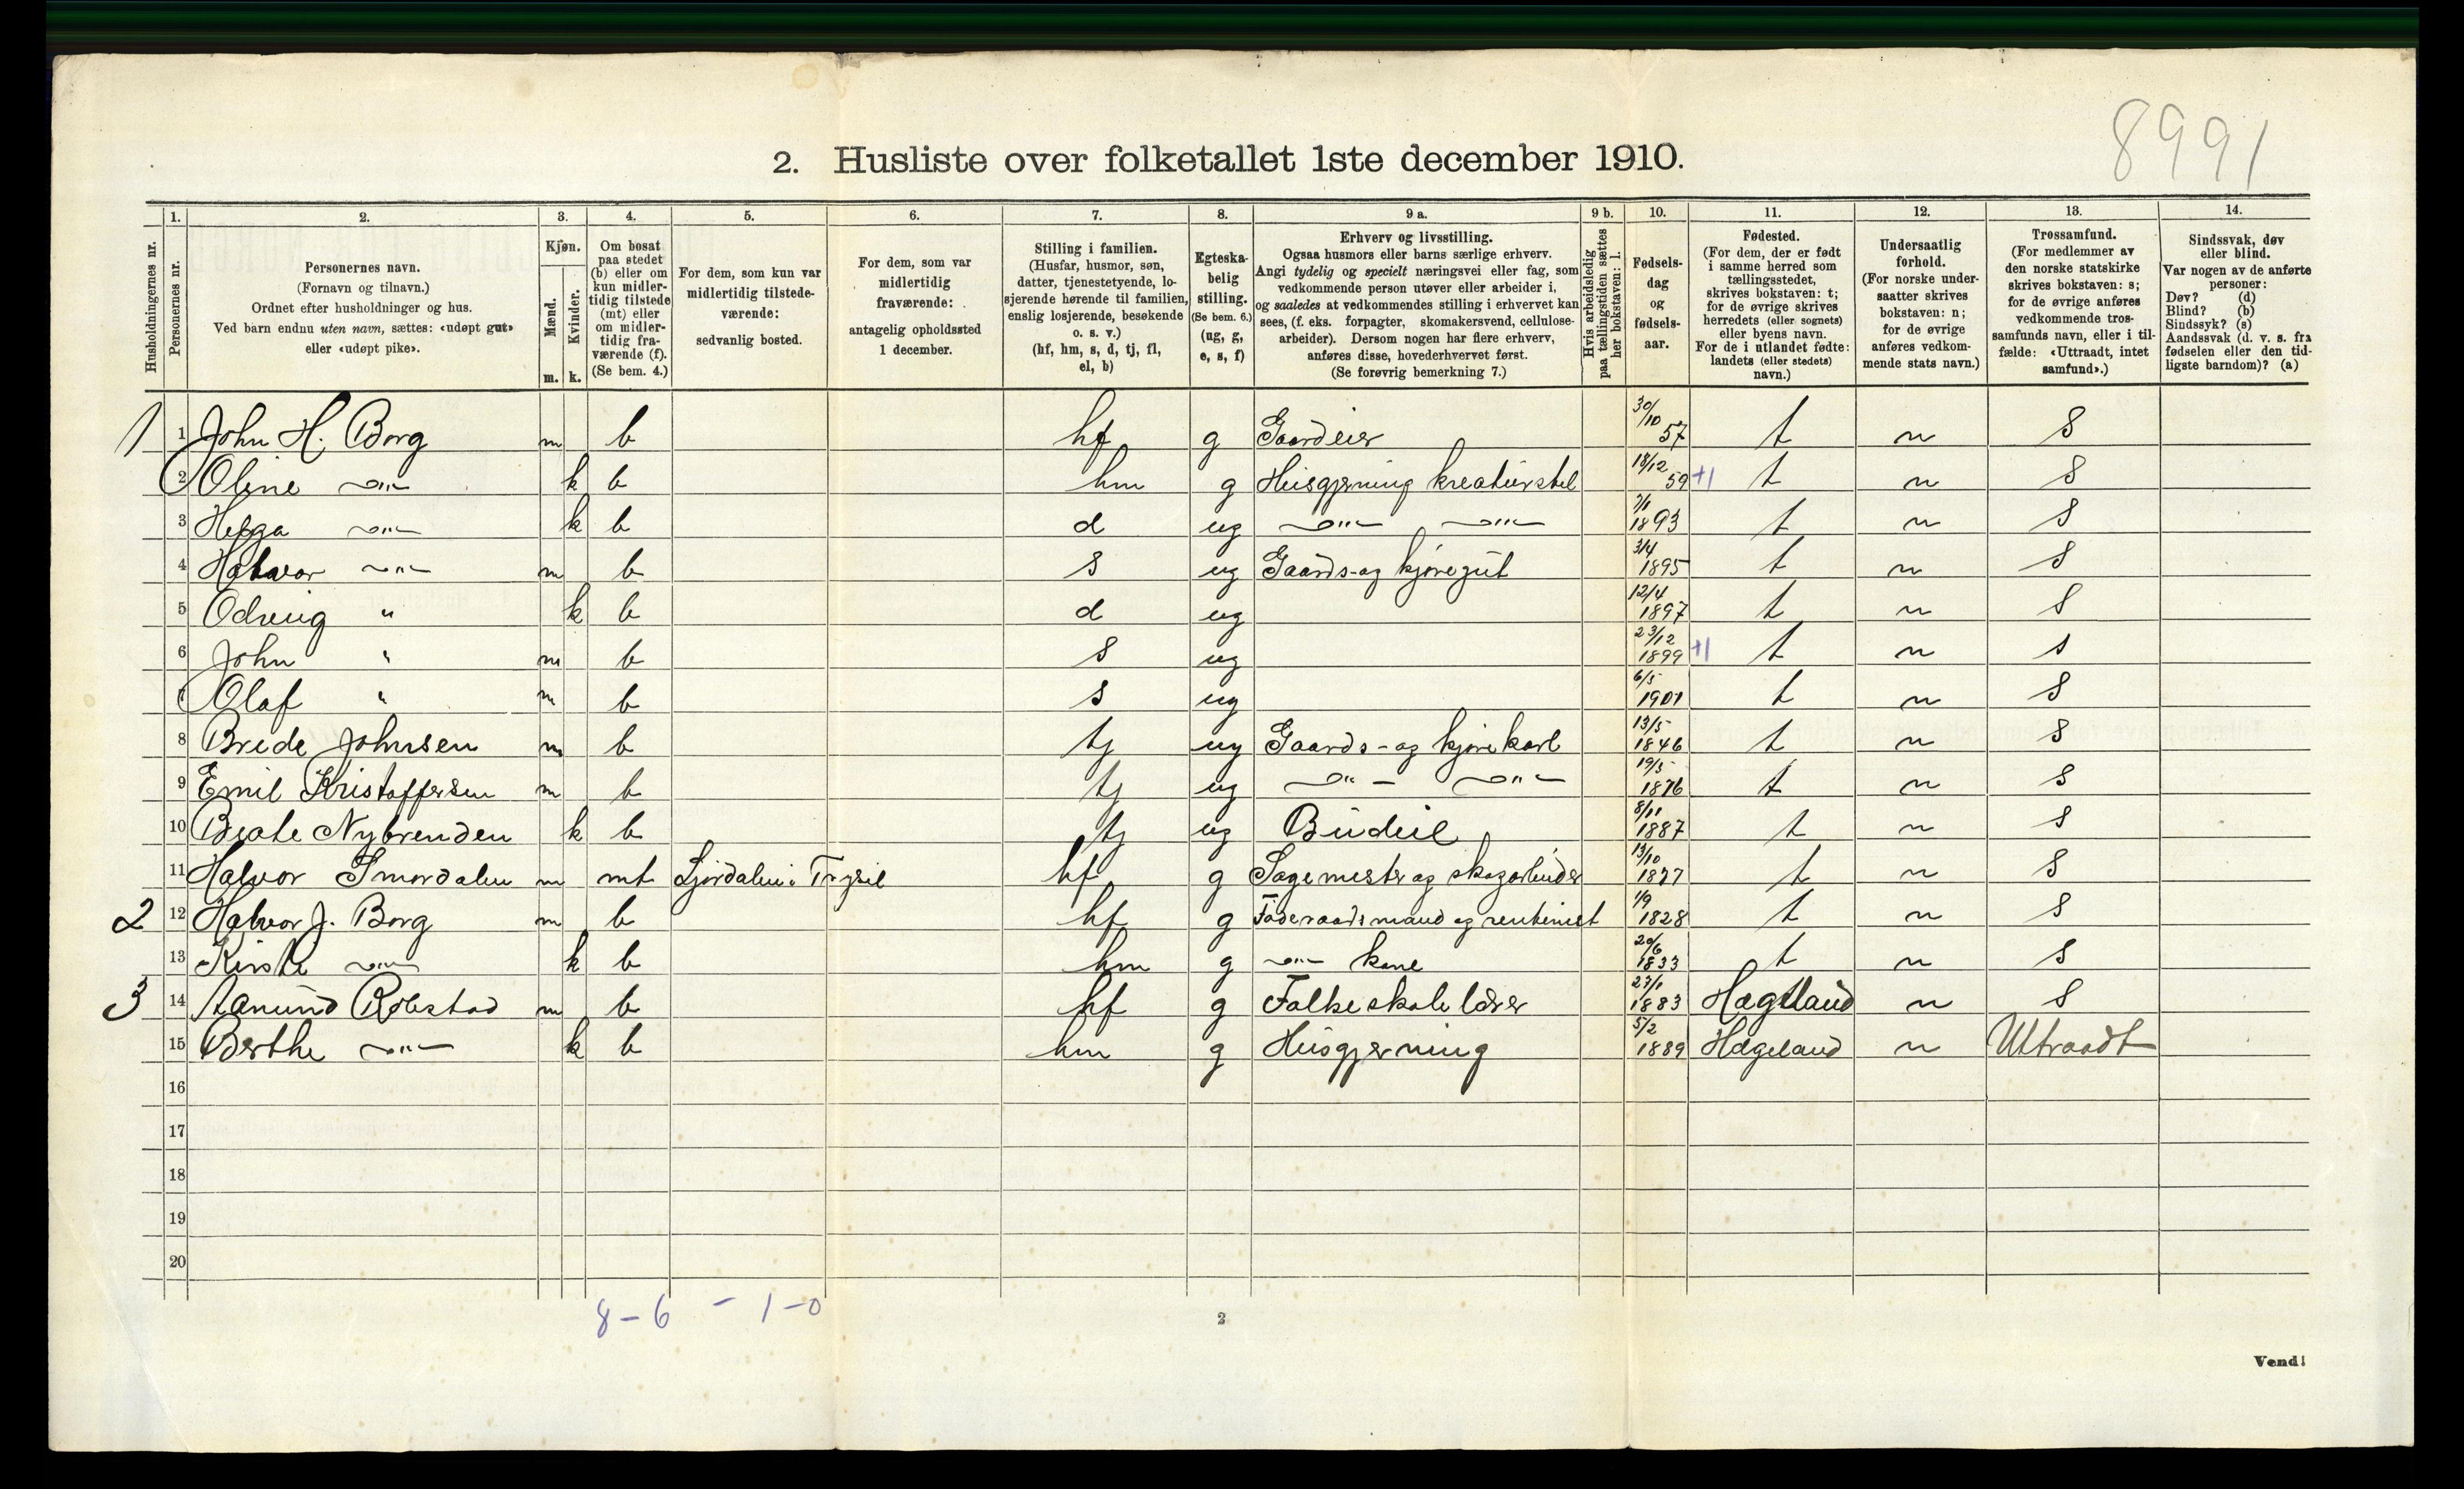 8991
2. Husliste over folketallet 1ste december 1910.
Husholdningernes nr.
1. Personernes nr.
2. Personernes navn. (Fornavn og tilnavn.) Ordnet efter husholdninger og hus. Ved barn endnu uten navn, sættes: «udøpt gut» eller «udøpt pike».
3. Kjøn. Mænd. m. Kvinder. k.
4. Om bosat paa stedet (b) eller om kun midlertidig tilstede (mt) eller om midlertidig fraværende (f). (Se bem. 4.)
5. For dem, som kun var midlertidig tilstedeværende: sedvanlig bosted.
6. For dem, som var midlertidig fraværende: antagelig opholdssted 1 december.
7. Stilling i familien. (Husfar, husmor, søn, datter, tjenestetyende, losjerende hørende til familien, enslig losjerende, besøkende o. s. v.) (hf, hm, s, d, tj, fl, el, b)
8. Egteskabelig stilling. (Se bem. 6.) (ug, g, e, s, f)
9 a. Erhverv og livsstilling. Ogsaa husmors eller barns særlige erhverv. Angi tydelig og specielt næringsvei eller fag, som vedkommende person utøver eller arbeider i, og saaledes at vedkommendes stilling i erhvervet kan sees, (f. eks. forpagter, skomakersvend, cellulosearbeider). Dersom nogen har flere erhverv, anføres disse, hovederhvervet først. (Se forøvrig bemerkning 7.)
9 b. Hvis arbeidsledig paa tællingstiden sættes her bokstaven: l.
10. Fødselsdag og fødselsaar.
11. Fødested. (For dem, der er født i samme herred som tællingsstedet, skrives bokstaven: t; for de øvrige skrives herredets (eller sognets) eller byens navn. For de i utlandet fødte: landets (eller stedets) navn.)
12. Undersaatlig forhold. (For norske undersaatter skrives bokstaven: n; for de øvrige anføres vedkommende stats navn.)
13. Trossamfund. (For medlemmer av den norske statskirke skrives bokstaven: s; for de øvrige anføres vedkommende trossamfunds navn, eller i tilfælde: «Uttraadt, intet samfund».)
14. Sindssvak, døv eller blind. Var nogen av de anførte personer: Døv? (d) Blind? (b) Sindssyk? (s) Aandssvak (d. v. s. fra fødselen eller den tidligste barndom)? (a)
1 1 John H. Borg m b hf g Gaardeier 30/10 57 t n S
2 Oline —"— k b hm g Husgjerning kreaturstel 18/12 59 +1 t n S
3 Helga —"— k b d ug —"— —"— 7/1 1893 t n S
4 Halvor —"— m b s ug Gaards- og kjøregut 3/4 1895 t n S
5 Odveig " k b d ug 12/4 1897 t n S
6 John " m b s ug 23/12 1899 +1 t n s
7 Olaf " m b s ug 6/5 1901 t n S
8 Brede Johnsen m b tj ug Gaards- og kjørekarl 13/5 1846 t n S
9 Emil Kristoffersen m b tj ug —"— —"— 19/5 1876 t n S
10 Beate Nybrenden k b tj ug Budeie 8/11 1887 t n S
11 Halvor Smordalen m mt Ljørdalen i Trysil hf g Sagmester og skogarbeider 13/10 1877 t n S
2 12 Halvor J. Borg m b hf g Føderaadsmand og rentenist 1/9 1828 t n S
13 Kirsti —"— k b hm g —"— kone 20/6 1833 t n S
3 14 Aanund Robstad m b hf g Folkeskolelærer 27/1 1883 Hægeland n S
15 Berthe —"— k b hm g Husgjerning 5/2 1889 Hægeland n Uttraadt
16
17
18
19
20
8 – 6 – 1 – 0
2
Vend!